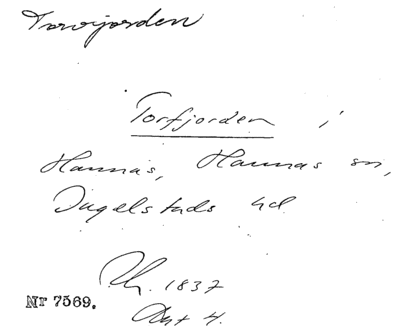 Torvjorden
Torfjorden i
Hannas, Hannas sn,
Ingelstads hd
Ch. 1837
Akt 4.
Nr 7569.